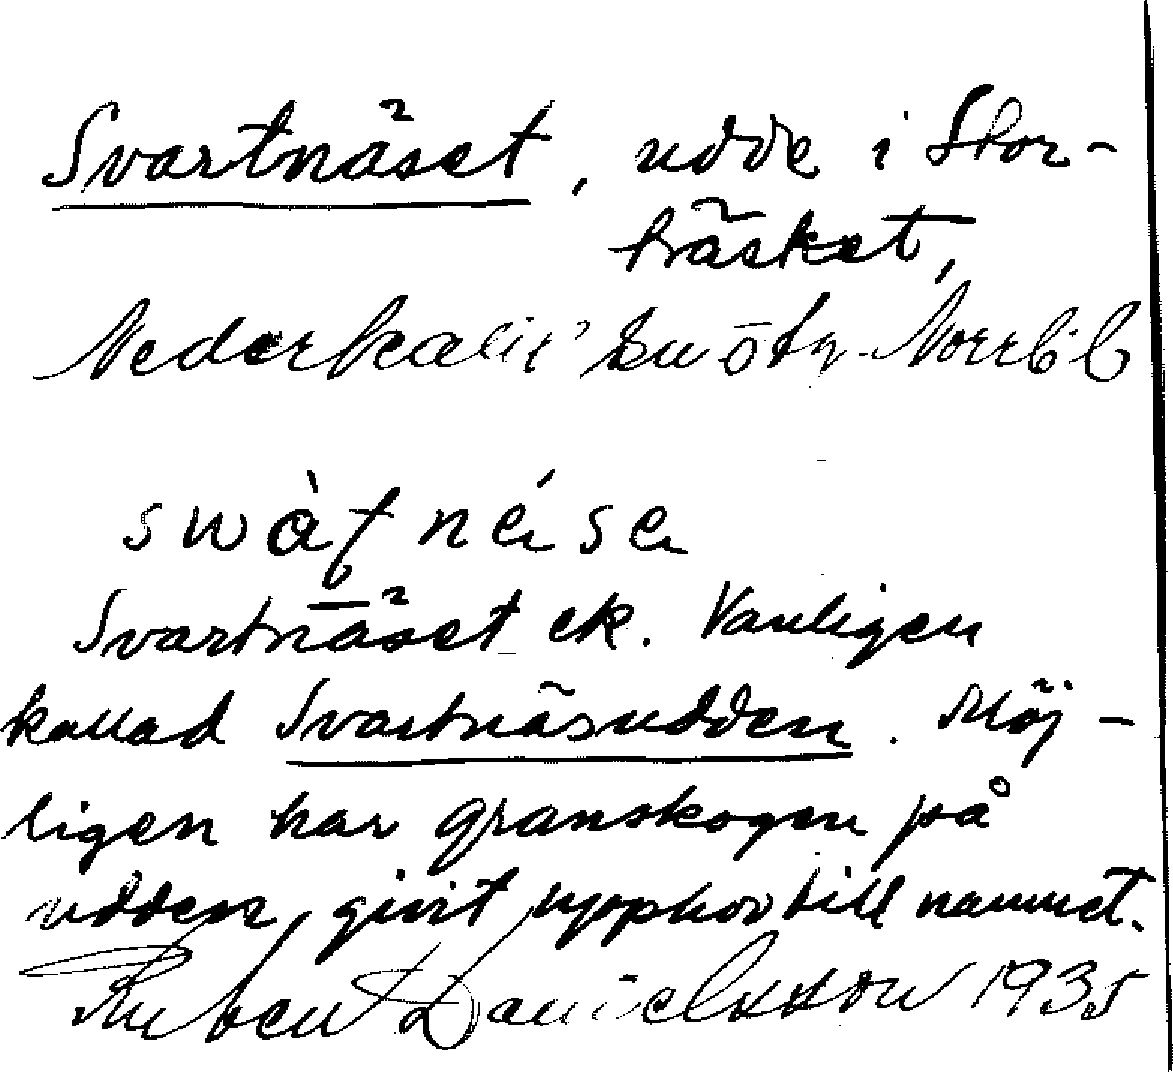 Svartnäset, udde i Stor-
träsket,
Nederkalix sn Norrb.
swàt nése
Svartnäset ek. Vanligen
kallad Svartnäsudden. Möj-
ligen har granskogen på
udden givit upphov till namnet.
Ruben Danielsson 1935